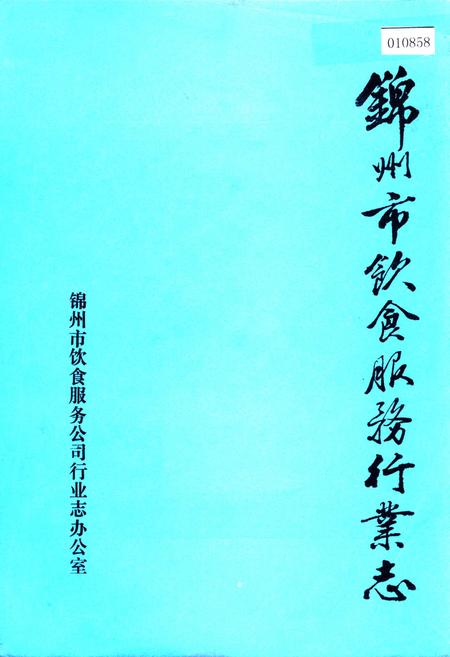 010858
錦州市飲食服務行業志
锦州市饮食服务公司行业志办公室